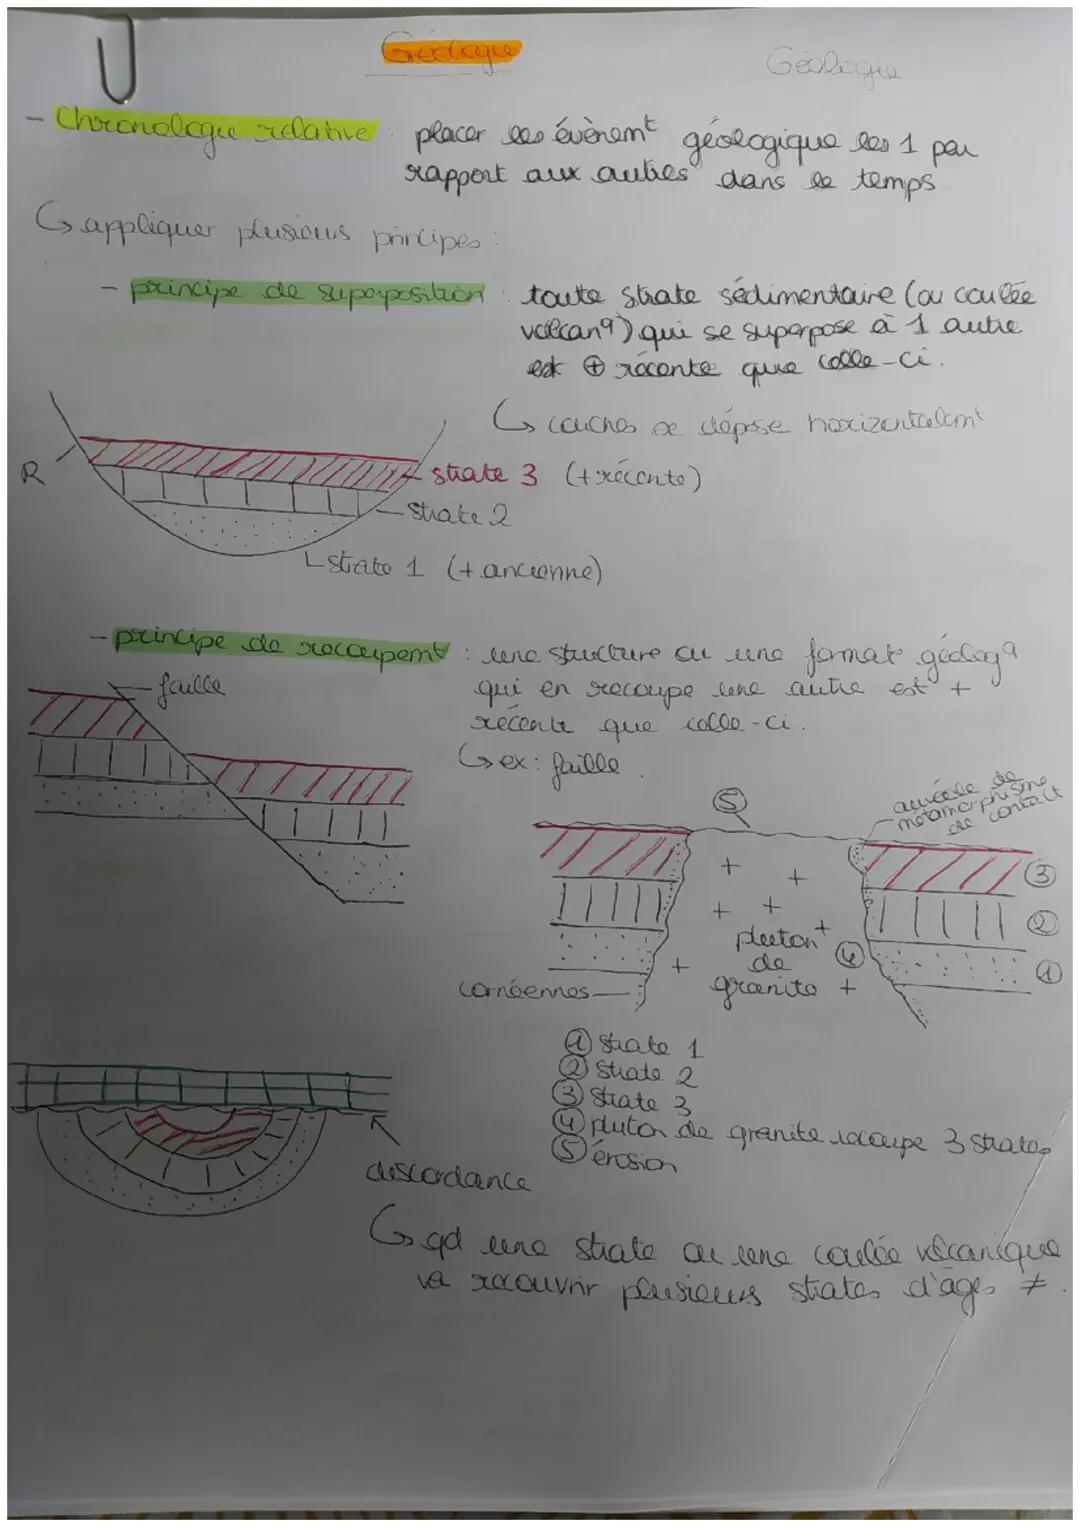 Géologie
Géologie
- Chronologie relative : placer les évènemt géologique les 1 par
rapport aux autres dans le temps
↳ appliquer plusieurs principes :
- principe de superposition : toute strate sédimentaire (ou coulée
volcanq) qui se superpose à 1 autre
est ⊕ récente que celle-ci.
↳ couches se dépose horizontalemt
R
strate 3 (+ récente)
strate 2
strate 1 (+ ancienne)
- principe de recoupemt : une structure ou une format° géologq
faille
qui en recoupe une autre est +
récente que celle-ci.
↳ ex : faille
⑤
auréole de
métamorphisme
de contact
③
②
pluton
de
granite
④
①
cornéennes
① strate 1
② strate 2
③ strate 3
④ pluton de granite recoupe 3 strates
⑤ érosion
discordance
↳ qd une strate ou une coulée volcanique
va recouvrir plusieurs strates d'âges ≠.